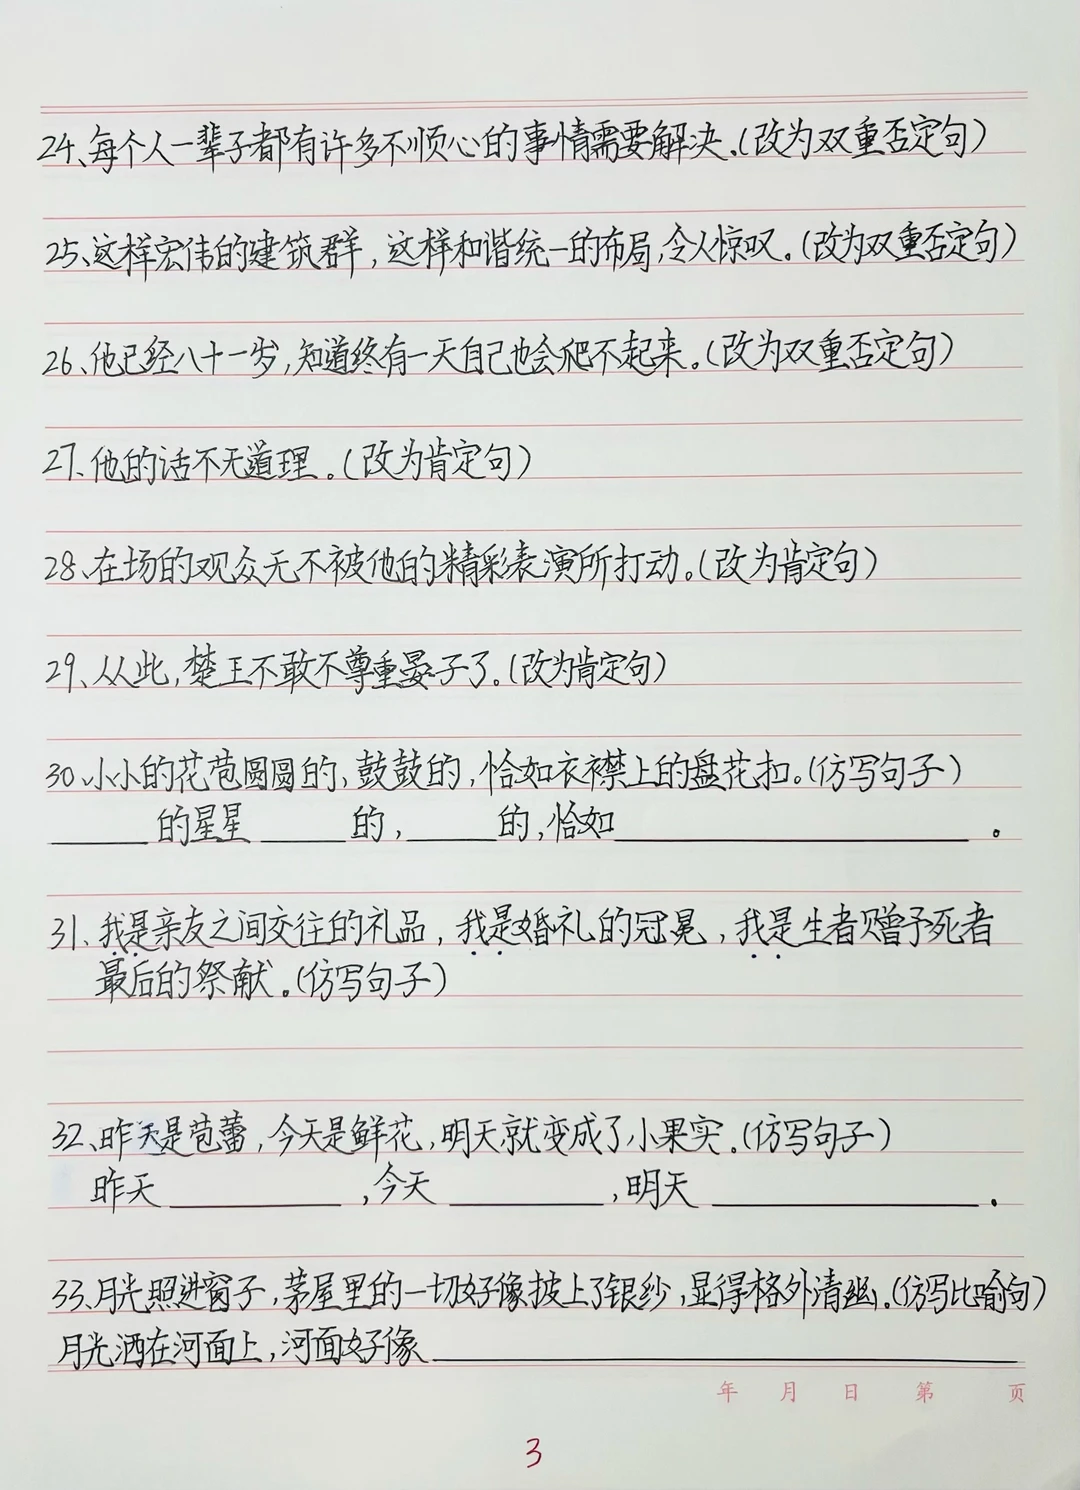 24、每个人一辈子都有许多不顺心的事情需要解决。(改为双重否定句)
25、这样宏伟的建筑群，这样和谐统一的布局，令人惊叹。(改为双重否定句)
26、他已经八十一岁，知道终有一天自己也会爬不起来。(改为双重否定句)
27、他的话不无道理。(改为肯定句)
28、在场的观众无不被他的精彩表演所打动。(改为肯定句)
29、从此，楚王不敢不尊重晏子了。(改为肯定句)
30、小小的花苞圆圆的，鼓鼓的，恰如衣襟上的盘花扣。(仿写句子)
______的星星______的，______的，恰如____________________。
31、我是亲友之间交往的礼品，我是婚礼的冠冕，我是生者赠予死者
最后的祭献。(仿写句子)
32、昨天是苞蕾，今天是鲜花，明天就变成了小果实。(仿写句子)
昨天__________，今天__________，明天________________。
33、月光照进窗子，茅屋里的一切好像披上了银纱，显得格外清幽。(仿写比喻句)
月光洒在河面上，河面好像________________________________
年 月 日 第 页
3